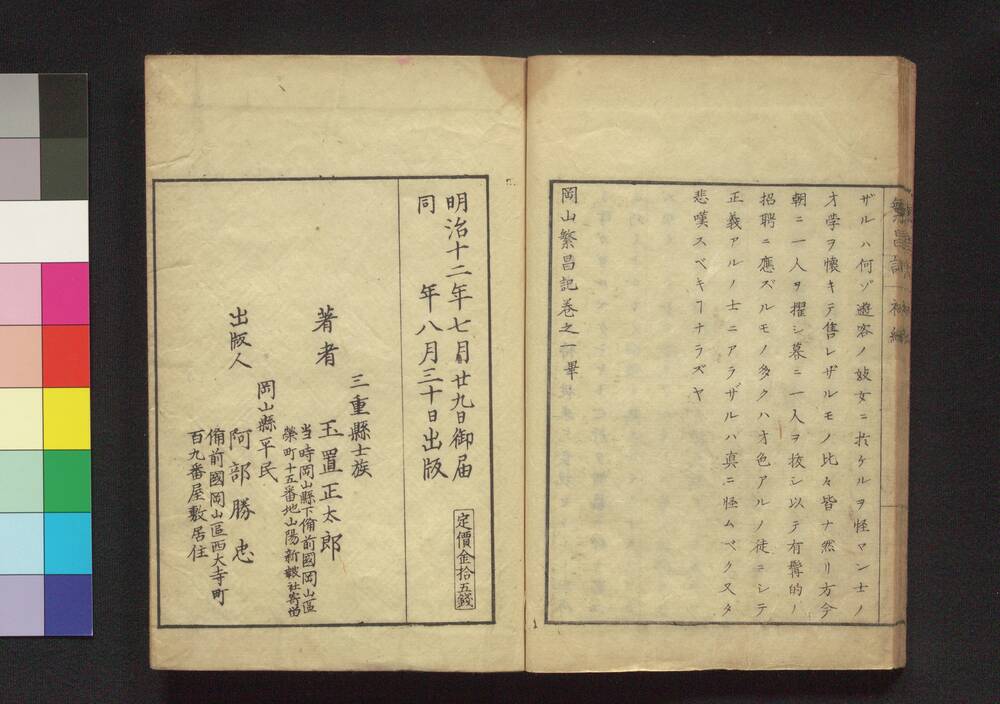 ザルハ何ゾ遊客ノ妓女ニ於ケルヲ怪マン士ノ
才学ヲ懐キテ售レザルモノ比々皆ナ然リ方今
朝ニ一人ヲ擢シ暮ニ一人ヲ抜シ以テ有髯的ノ
招聘ニ應ズルモノ多クハ才色アルノ徒ニシテ
正義アルノ士ニアラザルハ真ニ怪ムベク又タ
悲嘆スベキヿナラズヤ
岡山繁昌記巻之一畢
明治十二年七月廿九日御届
同 年八月三十日出版
定價金拾五錢
三重縣士族
著者 玉置正太郎
当時岡山縣下備前國岡山區
榮町十五番地山陽新報社寄留
岡山縣平民
出版人 阿部勝忠
備前國岡山區西大寺町
百九番屋敷居住